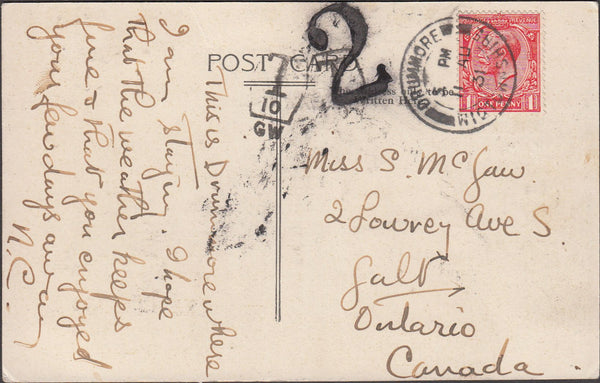 POST CARD
2
T
10
GW
DRUMMORE
PM
AU
31
ONE PENNY
1
1
This is Drummore where
I am staying. I hope
that the weather keeps
fine & that you enjoyed
your few days away
N.C.
Miss S. McGaw
2 Lowrey Ave S
Galt
Ontario
Canada